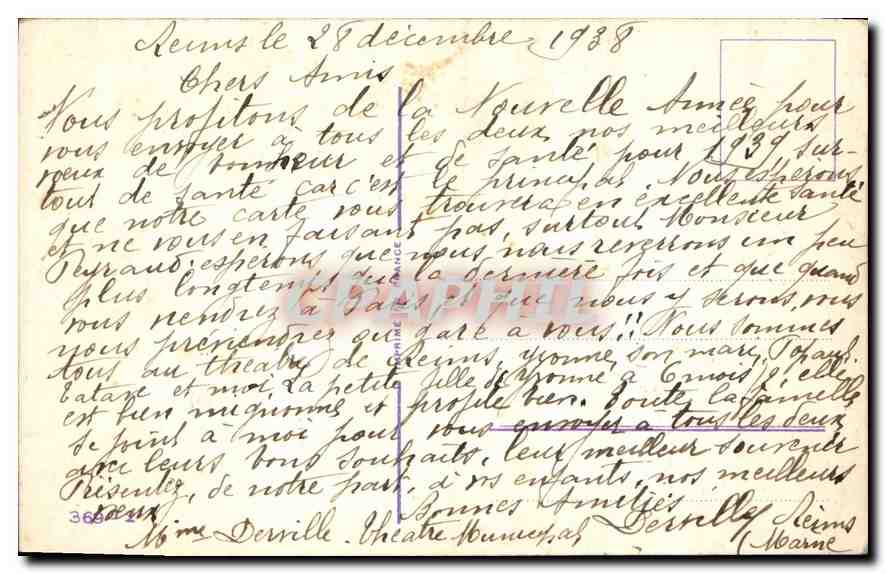 Reims le 28 décembre 1938
Chers Amis
Nous profitons de la Nouvelle Année pour
vous envoyer à tous les deux nos meilleurs
vœux de bonheur et de santé pour 1939, sur-
tout de santé car c'est le principal. Nous espérons
que notre carte vous trouvera en excellente santé
et ne vous en faisant pas, surtout Monsieur
Peyraud. espérons que nous nous reverrons un peu
plus longtemps que la dernière fois et que quand
vous viendrez à Paris et que nous y serons, vous
nous préviendrez ou gare à vous!! Nous sommes
tous au théâtre de Reims, Yvonne, son mari, Popaul,
Tatave et moi. La petite fille d'Yvonne à 6 mois, elle
est bien mignonne et profite bien. Toute la famille
se joint à moi pour vous envoyer à tous les deux
avec leurs bons souhaits, leur meilleur souvenir
Présentez, de notre part, à vos enfants, nos meilleurs
vœux
Bonnes Amitiés
Derville
Mme Derville. Théâtre Municipal Reims
(Marne
IMPRIMÉ EN FRANCE
369
CPAPHIL